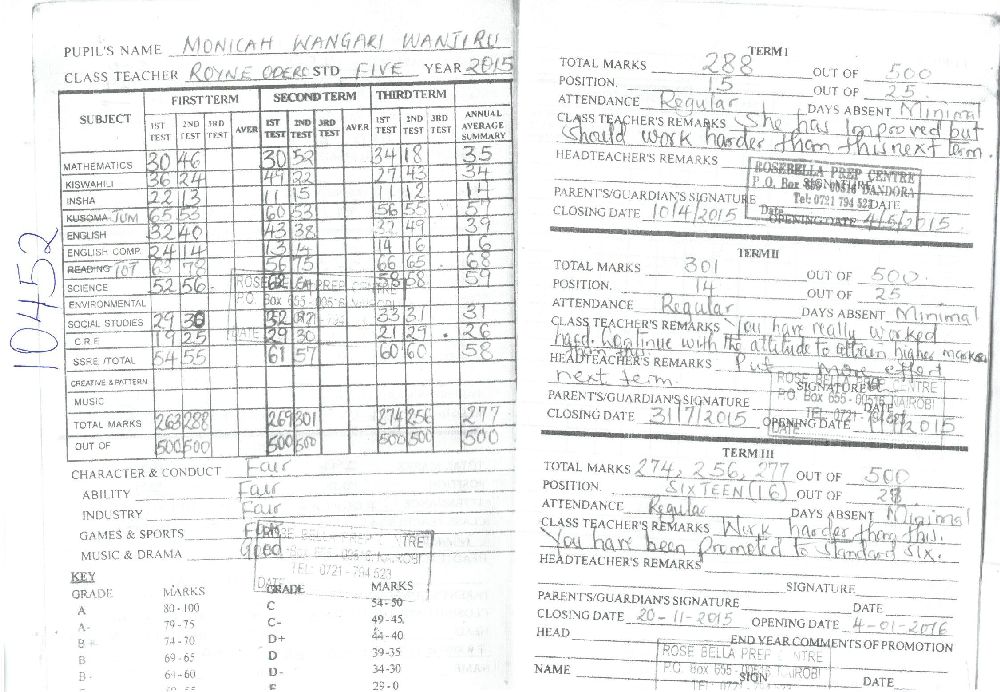 PUPIL'S NAME MONICAH WANGARI WANJIRU
CLASS TEACHER ROYNE ODERO STD FIVE YEAR 2015
SUBJECT FIRST TERM SECOND TERM THIRD TERM
1ST TEST 2ND TEST 3RD TEST AVER 1ST TEST 2ND TEST 3RD TEST AVER 1ST TEST 2ND TEST 3RD TEST ANNUAL AVERAGE SUMMARY
MATHEMATICS 30 46 30 52 34 18 35
KISWAHILI 36 24 49 22 27 43 34
INSHA 22 13 11 15 11 12 14
KUSOMA JUM 65 53 60 53 56 55 57
ENGLISH 32 40 43 38 49 39
ENGLISH COMP. 24 14 13 14 14 16 16
READING TOT 63 78 56 75 66 65 68
SCIENCE 52 56 58 58 59
ENVIRONMENTAL
SOCIAL STUDIES 29 30 32 33 31 31
C.R.E 19 25 29 30 21 29 26
SSRE /TOTAL 54 55 61 57 60 60 58
CREATIVE & PATTERN
MUSIC
TOTAL MARKS 263 288 269 301 274 256 277
OUT OF 500 500 500 500 500 500 500
CHARACTER & CONDUCT Fair
ABILITY Fair
INDUSTRY Fair
GAMES & SPORTS Fair
MUSIC & DRAMA Good
KEY
GRADE MARKS GRADE MARKS
A 80-100 C 54-50
A- 79-75 C- 49-45
B+ 74-70 D+ 44-40
B 69-65 D 39-35
B- 64-60 D- 34-30
E 29-0
10452
TERM I
TOTAL MARKS 288 OUT OF 500
POSITION. 15 OUT OF 25.
ATTENDANCE Regular DAYS ABSENT Minimal
CLASS TEACHER'S REMARKS She has improved but
should work harder than this next term.
HEADTEACHER'S REMARKS
ROSEBELLA PREP CENTRE
P. O. Box 655 - 00516 DANDORA
SIGNATURE
Tel: 0721 794 523
PARENT'S/GUARDIAN'S SIGNATURE DATE
Date
CLOSING DATE 10/4/2015 OPENING DATE 4/5/2015
TERM II
TOTAL MARKS 301 OUT OF 500.
POSITION. 14 OUT OF 25
ATTENDANCE Regular DAYS ABSENT Minimal
CLASS TEACHER'S REMARKS You have really worked
hard. continue with the attitude to attain higher marks
HEADTEACHER'S REMARKS Put more effort
next term.
SIGNATURE
ROSE BELLA PREP CENTRE
P.O. Box 655 - 00516 NAIROBI
PARENT'S/GUARDIAN'S SIGNATURE DATE
CLOSING DATE 31/7/2015 OPENING DATE 2015
TERM III
TOTAL MARKS 274, 256, 277 OUT OF 500
POSITION. SIXTEEN (16) OUT OF 28
ATTENDANCE Regular DAYS ABSENT Minimal
CLASS TEACHER'S REMARKS Work harder than this.
You have been Promoted to Standard Six.
HEADTEACHER'S REMARKS
SIGNATURE
PARENT'S/GUARDIAN'S SIGNATURE DATE
CLOSING DATE 20-11-2015 OPENING DATE 4-01-2016
HEAD END YEAR COMMENTS OF PROMOTION
ROSE BELLA PREP CENTRE
NAME SIGN DATE